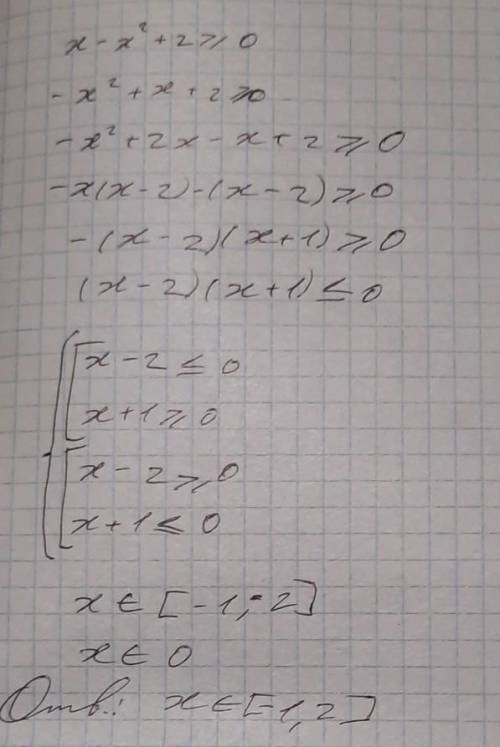 x - x² + 2 ⩾ 0
- x² + x + 2 ⩾ 0
- x² + 2x - x + 2 ⩾ 0
-x(x-2)-(x-2) ⩾ 0
-(x-2)(x+1) ⩾ 0
(x-2)(x+1) ≤ 0
x - 2 ≤ 0
x + 1 ⩾ 0
x - 2 ⩾ 0
x + 1 ≤ 0
x ∈ [-1; 2]
x ∈ 0
Отв.: x ∈ [-1, 2]